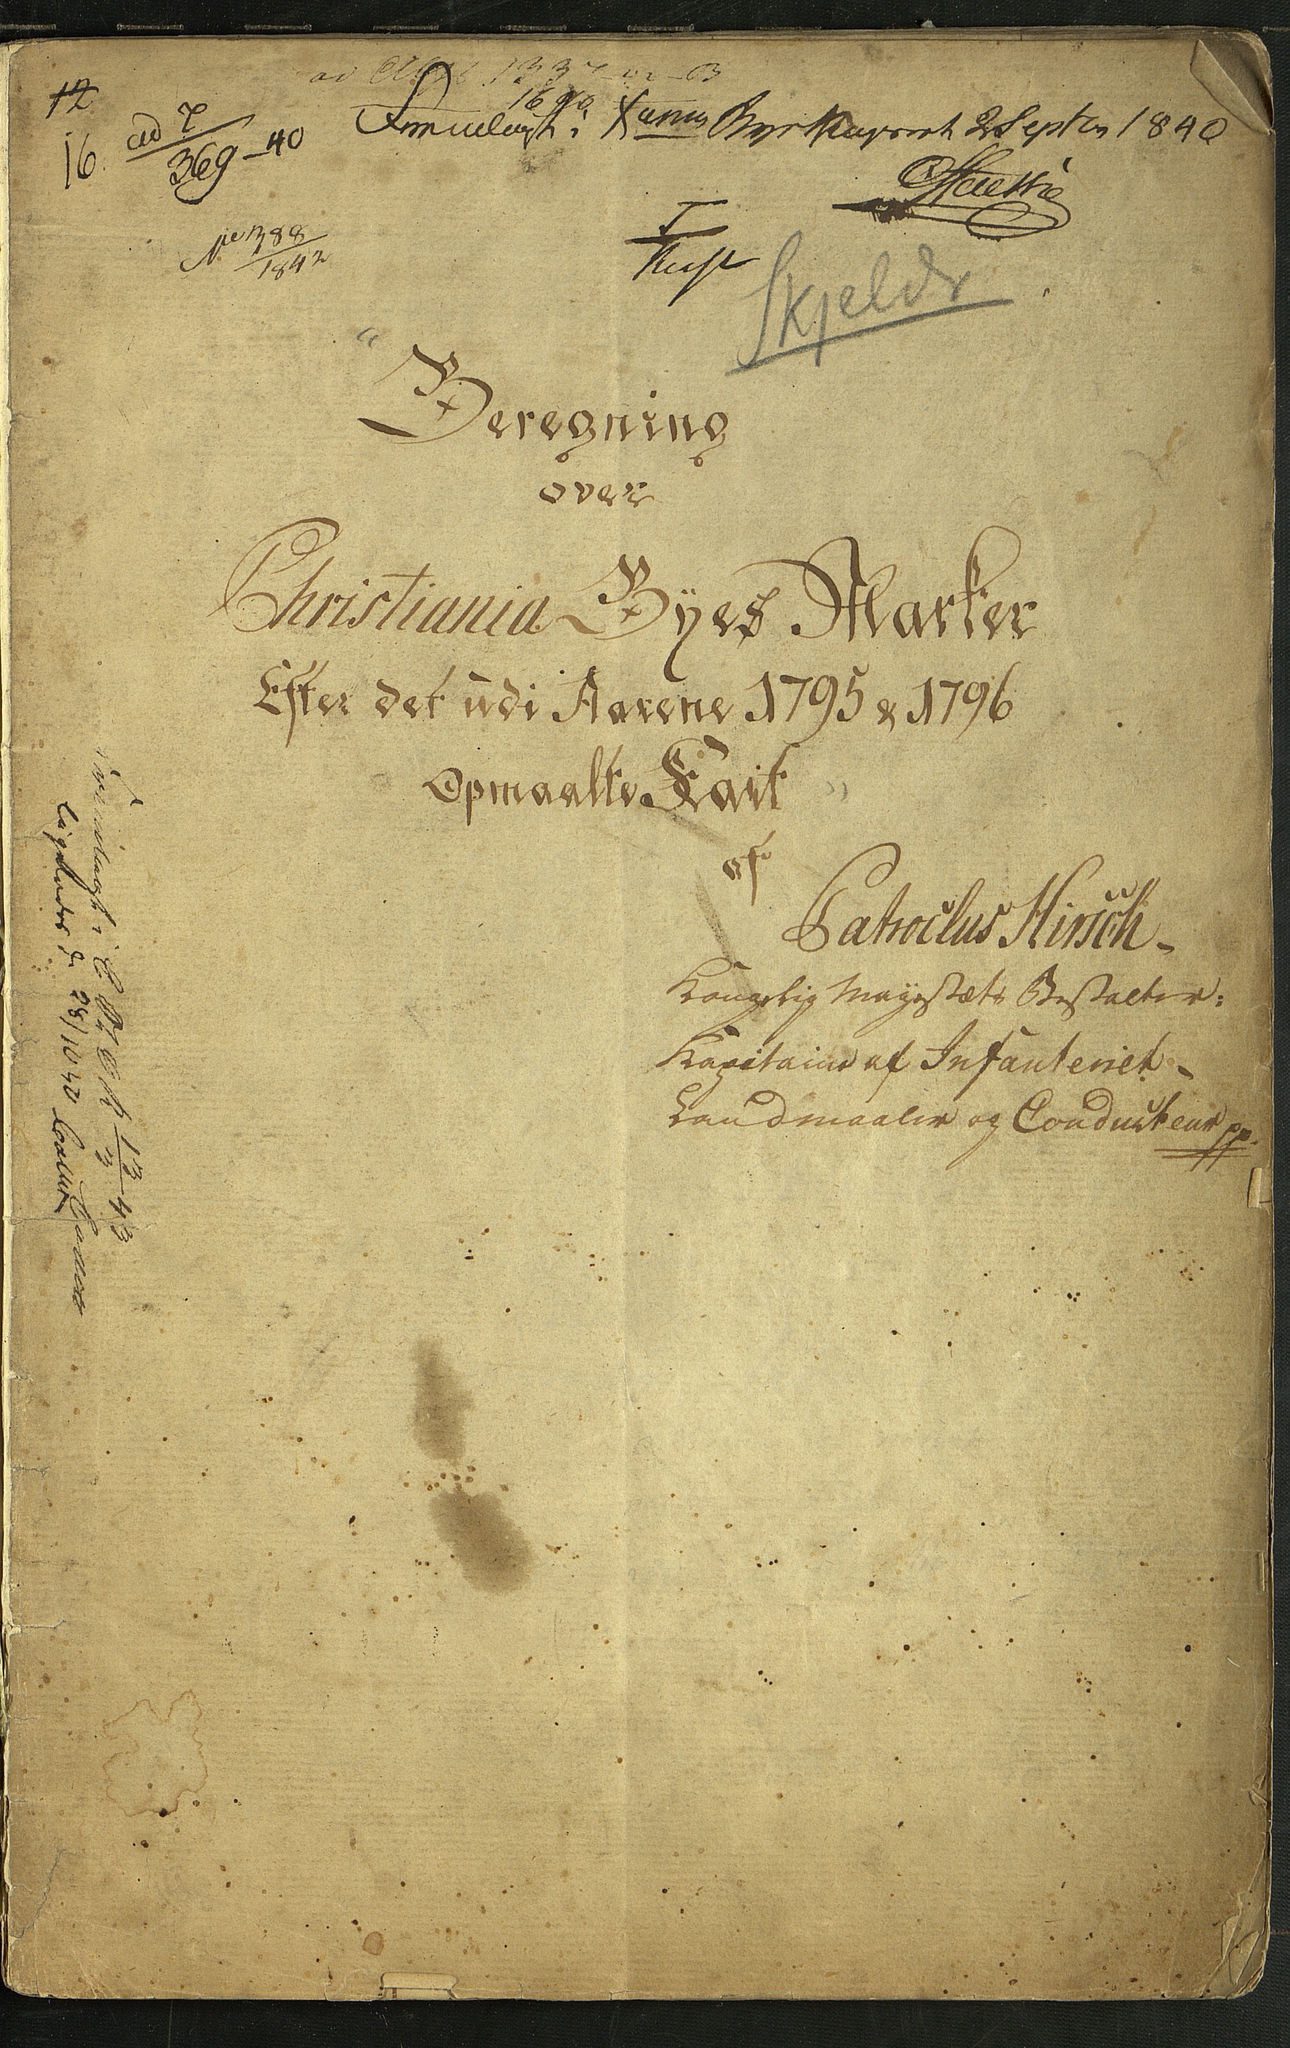 12
16.
ad 7/369-40
Fremlagt i Xania Byes Mag 2 Septbr 1840
No 388/1842
Skjeldr
"Beregning
over
Christiania Byes Marker
Efter det udi Aarene 1795 & 1796
Opmaalte Kart"
af
Patroclus Hirsch -
Kongelig Mayestæts Bestalter:
Kapitain af Infanteriet -
Landmaaler og Conducteur pp.
Fremlagt i
13/3 43
Ligeledes d. 28/10 50